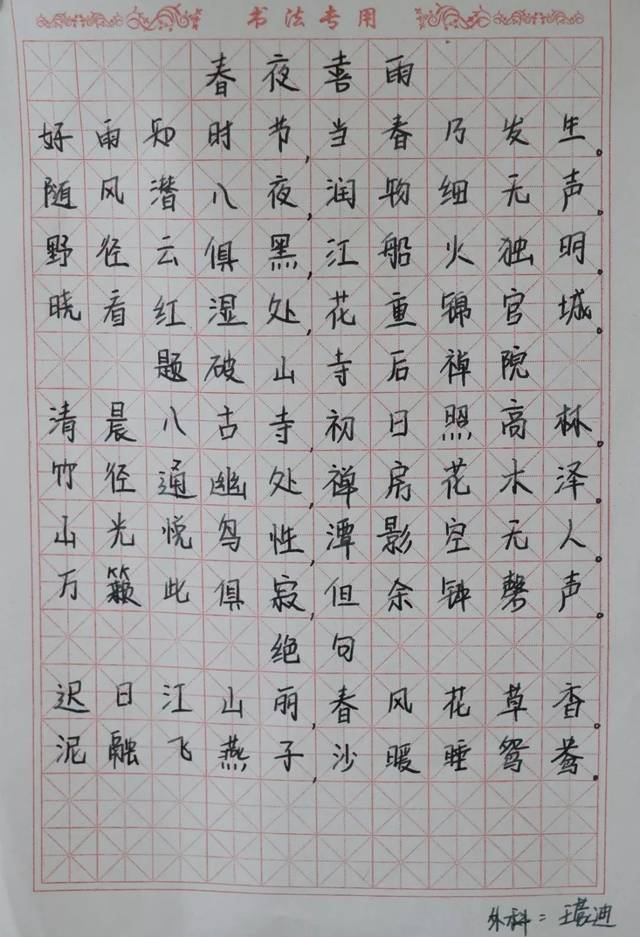 书法专用
春夜喜雨
好雨知时节,当春乃发生。
随风潜八夜,润物细无声。
野径云俱黑,江船火独明。
晓看红湿处,花重锦官城。
题破山寺后禅院
清晨八古寺,初日照高林。
竹径通幽处,禅房花木泽。
山光悦鸟性,潭影空无人。
万籁此俱寂,但余钟磬声。
绝句
迟日江山丽,春风花草香。
泥融飞燕子,沙暖睡鸳鸯。
外科: